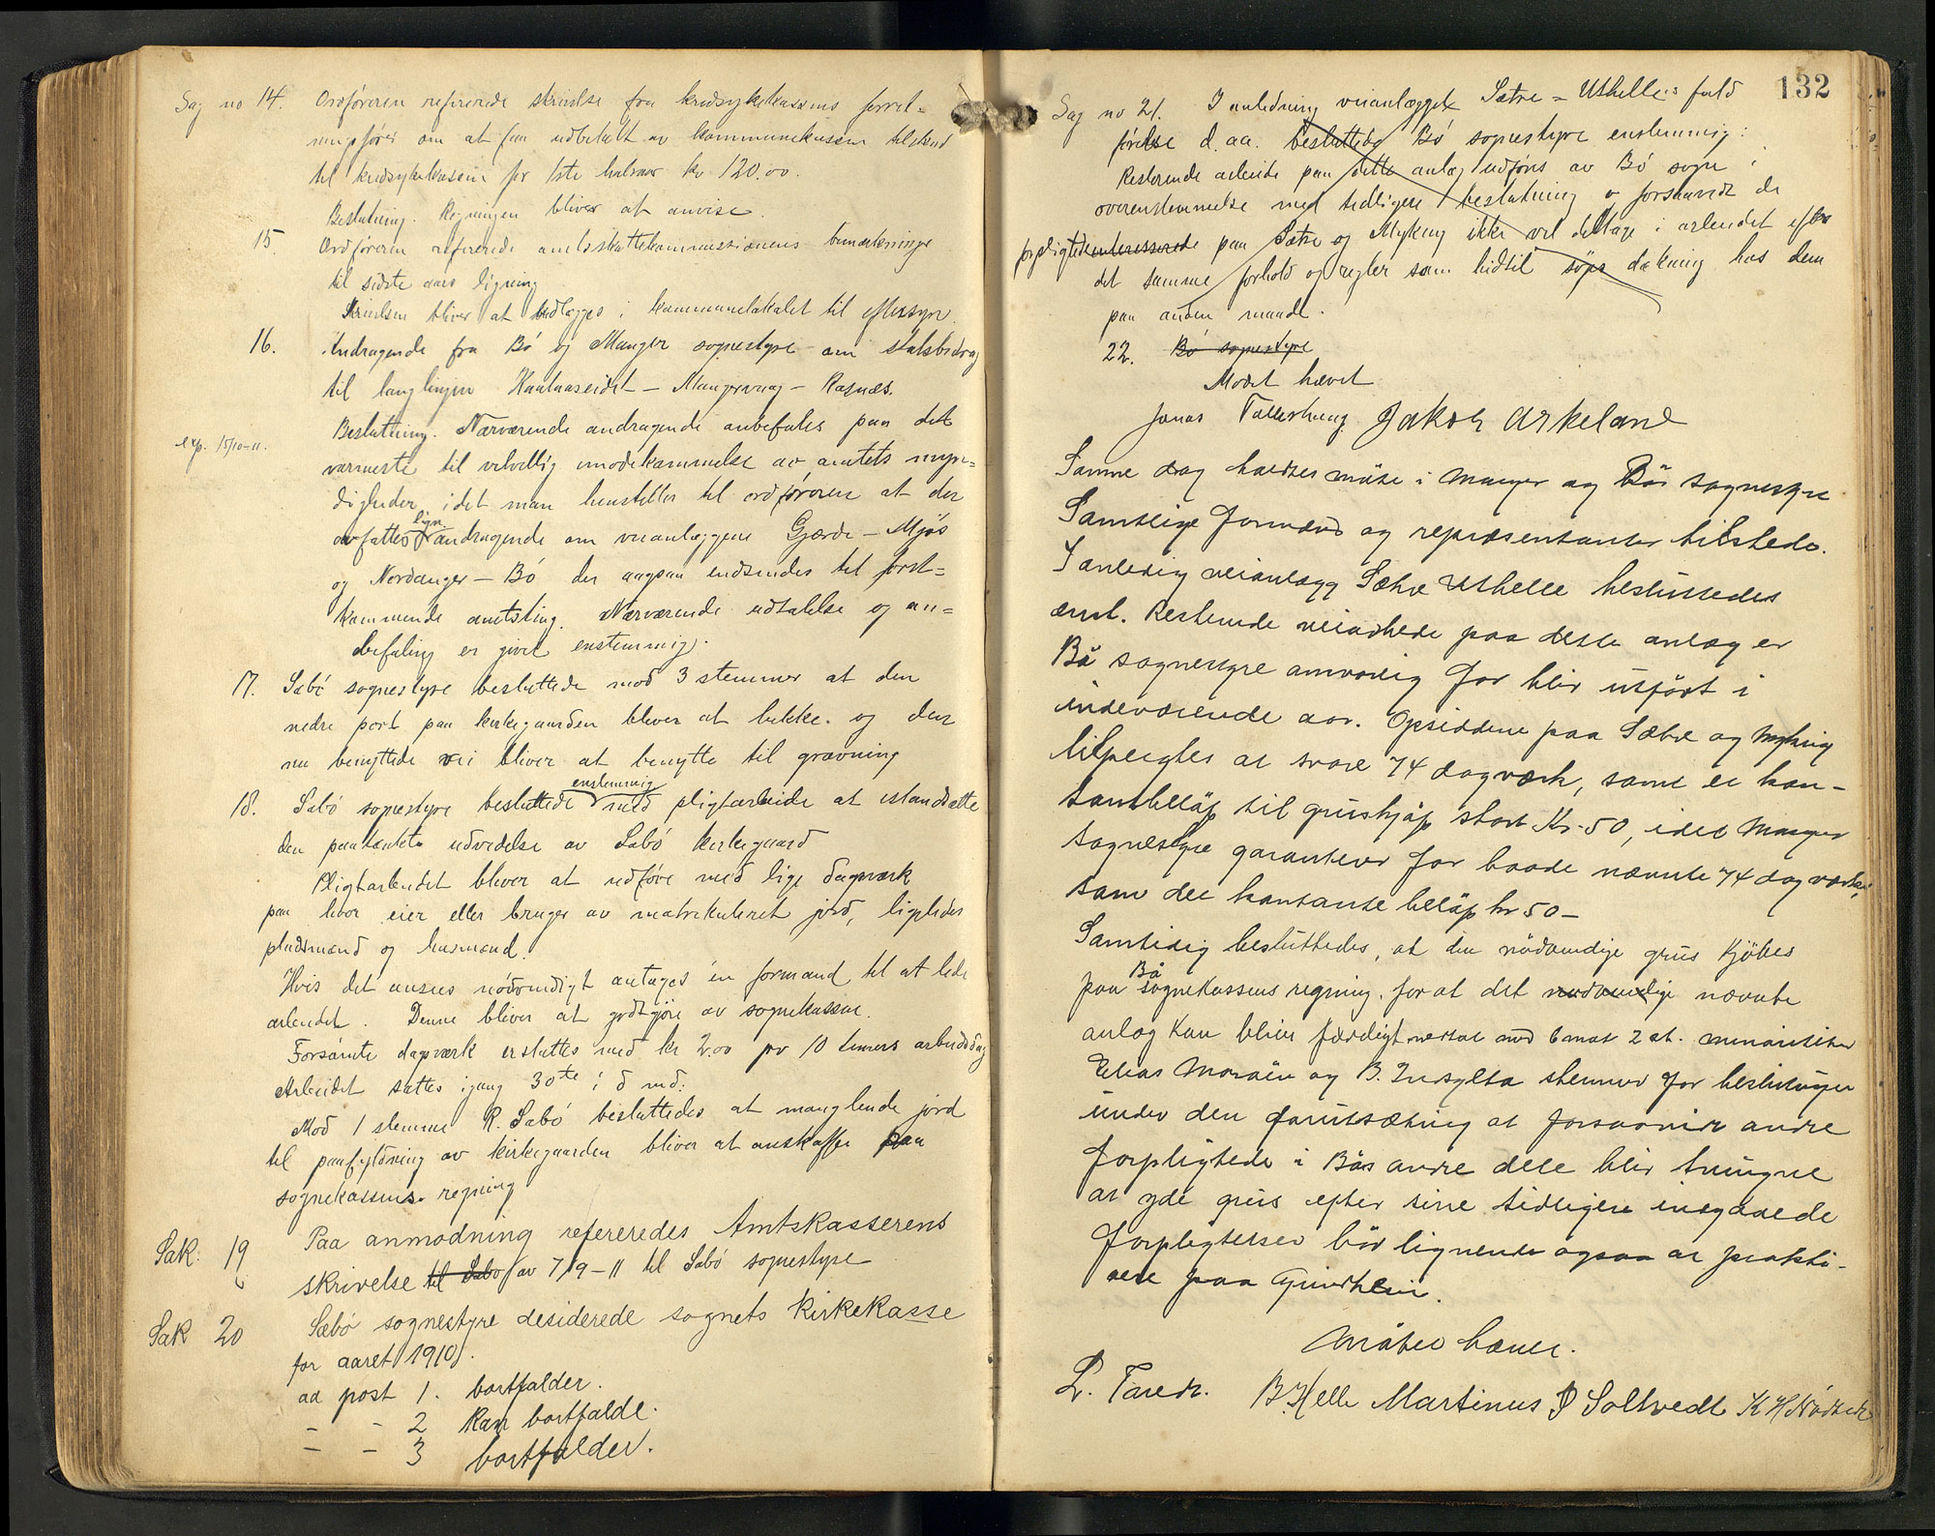 Sag no 14. Ordføreren refererede skrivelse fra kredsykekassens forret-
ningsfører om at faa udbetalt av kommunekassen tilskud
til kredsykekassen for 1ste halvaar kr 120.00.
Beslutning. Regningen bliver at anvise.
15 Ordføreren refererede amtsskattekommissionens bemærkninger
til sidste aars ligning
Skrivelsen bliver at udlægges i kommunelokalet til eftersyn.
16. Andragende fra Bö og Manger sognestyre om statsbidrag
til langlinjen Haalaaseidet – Mangervaag – Rosnæs.
exp. 15/10-11. Beslutning. Nærværende andragende anbefales paa det
varmeste til velvillig imødekommelse av amtets myn-
digheder, idet man henstiller til ordföreren at der
avfattes lign andragende om veianlæggene Gjerde – Mjös
og Nordanger – Bö der ogsaa indsendes til först-
kommende amtsting. Nærværende udtalelse og an-
befaling er givet enstemmig.
17. Sæbö sognestyre besluttede mod 3 stemmer at den
nedre port paa kirkegaarden bliver at lukke. og den
nu benyttede vei bliver at benytte til gravning
18. Sæbö sognestyre besluttede enstemmig med pligtarbeide at istandsætte
den paatænkte udvidelse av Sæbö kirkegaard
Pligtarbeidet bliver at udføre med lige dagværk
paa hver eier eller bruger av matrikuleret jord, ligeledes
pladsmænd og husmænd.
Hvis det ansees nödvendigt antages en formand til at lede
arbeidet. Denne bliver at godtgjöre av sognekassen.
Forsömte dagsværk erstattes med kr 2.00 pr 10 timers arbeidsdag
Arbeidet sættes igang 30te i d md.
Mod 1 stemme R. Sæbö besluttedes at manglende jord
til paafyldning av kirkegaarden bliver at anskaffe paa
sognekassens regning
Sak: 19 Paa anmodning refereredes Amtskasserens
skrivelse til Sæbö av 7/9-11 til Sæbö sognestyre
Sak 20 Sæbö sognestyre desiderede sognets kirkekasse
for aaret 1910.
ad post 1. bortfalder.
- - 2 kan bortfalde.
- - 3 bortfalder.
132
Sag no 21. I anledning veianlægget Sætre – Uthelles fuld
førelse d.aa. besluttede Bö sognestyre enstemmig:
Resterende arbeide paa dette anlæg udföres av Bö sogn i
overenstemmelse med tidligere beslutning og forsaavidt de
forpligtede interesserede paa Sætre og Myking ikke vil deltage i arbeidet efter
det samme forhold og regler som hidtil söges dækning hos dem
paa anden maade.
22. Bö sognestyre
Mödet hævet
Jonas Jakob Arkeland
Samme dag holdtes möte i Manger og Bös sognestyre
Samtlige formænd og repræsentanter tilstede.
I anledig veianlægg Sætre Uthelle besluttedes
enst. Resterende veiarbeide paa dette anlæg er
Bö sognestyre ansvarlig for blir utfört i
indeværende aar. Opsidderne paa Sætre og Myking
tilpligtes at svare 74 dagværk, samt et kon-
tantbelöp til gruskjöp stort Kr. 50, idet Manger
sognestyre garanterer for baade nævnte 74 dagværker
som det kontante belöp kr 50 –
Samtidig besluttedes, at den nödvendige grus kjöbes
paa Bö sognekassens regning. for at det nødvendige nævnte
anlæg kan bliver færdigt vedtat med 6 mot 2 st. minoriteten
Elias og B. stemmer for beslutningen
under den forutsætning at forsaavidt andre
forpligtede i Bös andre dele blir tvungne
at yde grus efter sine tidligere indgaaede
forpligtelser bör lignende ogsaa at prakti-
sere paa Grindheim.
Mötet hævet.
L. Taredr. B. Helle Martinus J Soltvedt